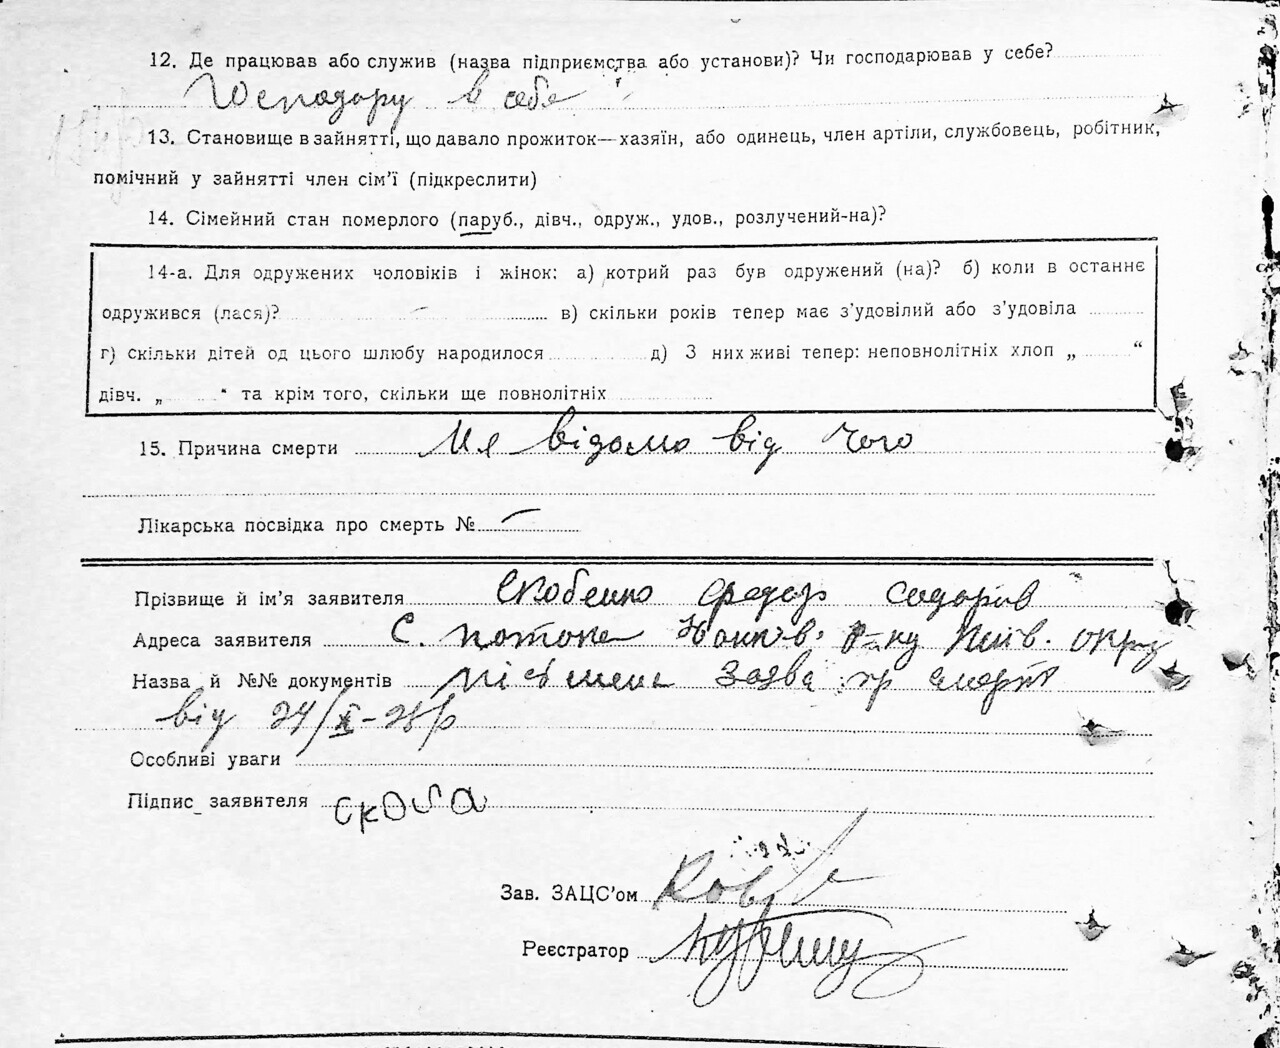 12. Де працював або служив (назва підприємства або установи)? Чи господарював у себе?
Господару в себе
13. Становище в зайнятті, що давало прожиток—хазяїн, або одинець, член артіли, службовець, робітник,
помічний у зайнятті член сім’ї (підкреслити)
14. Сімейний стан померлого (паруб., дівч., одруж., удов., розлучений-на)?
14-а. Для одружених чоловіків і жінок: а) котрий раз був одружений (на)? б) коли в останнє
одружився (лася)? — в) скільки років тепер має з’удовілий або з’удовіла
г) скільки дітей од цього шлюбу народилося д) З них живі тепер: неповнолітніх хлоп „ “
дівч. „ “ та крім того, скільки ще повнолітніх
15. Причина смерти Ня відомо від чого
Лікарська посвідка про смерть № —
Прізвище й ім’я заявителя Скобенко Федор Сидорів
Адреса заявителя С. Потоки р-ну Київ. окру
Назва й №№ документів пісьмена заява пр смерть
від 24/X-28р
Особливі уваги
Підпис заявителя скоба
Зав. ЗАЦС’ом
Реєстратор